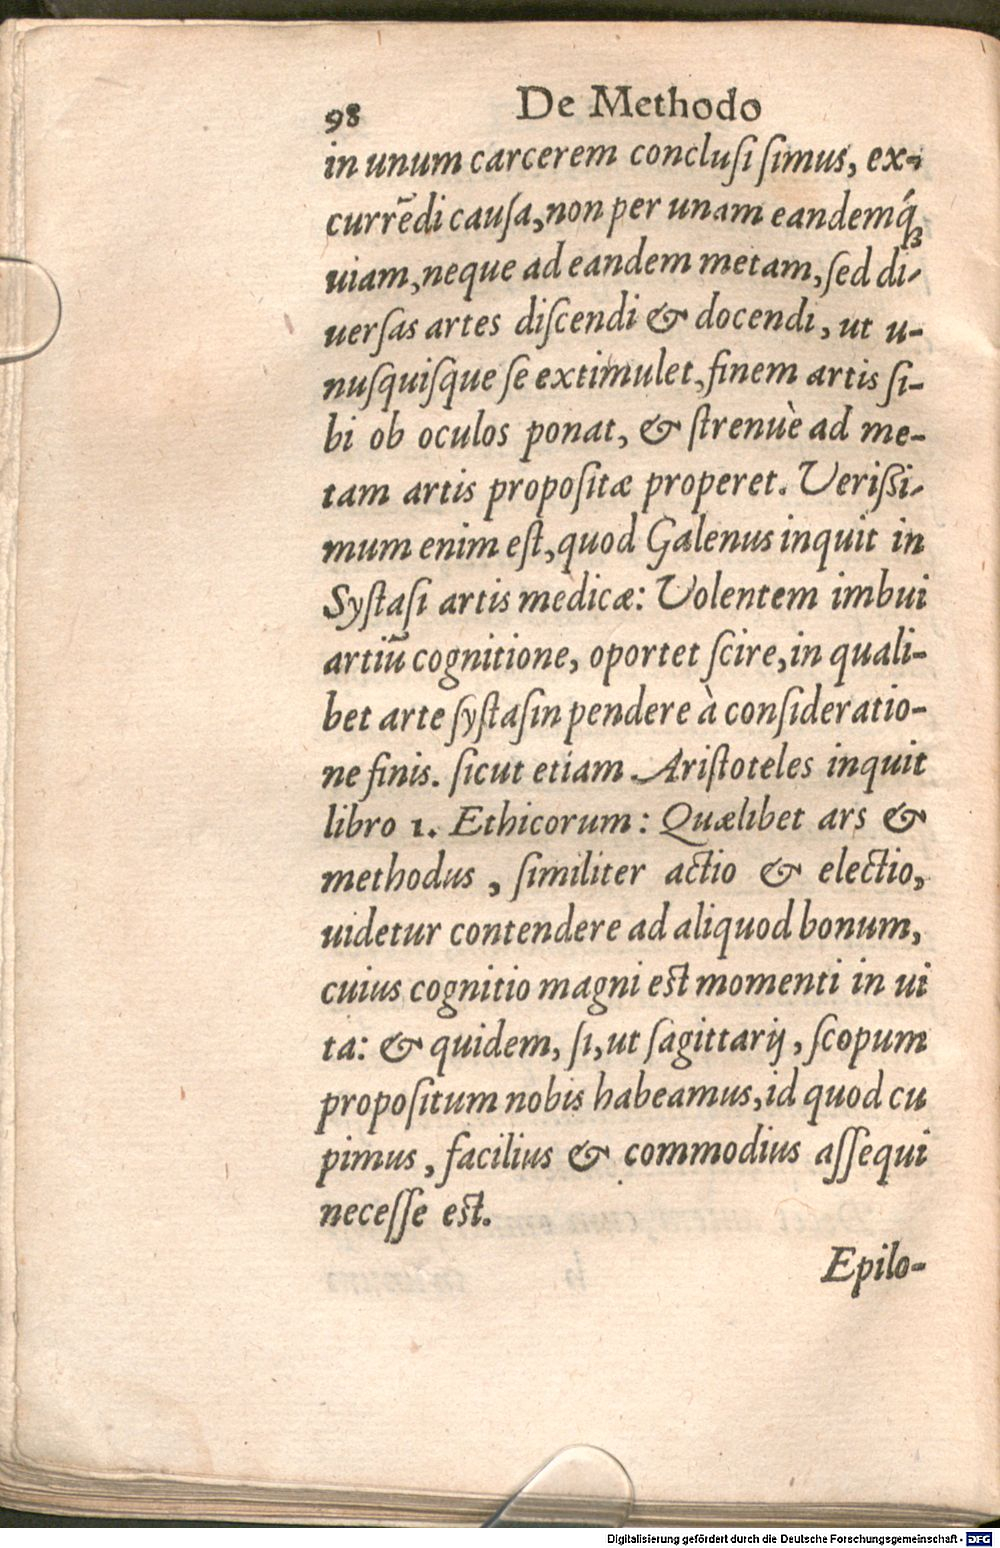 98 De Methodo
in unum carcerem conclusi simus, ex-
currēdi causa, non per unam eandemq́ꝫ
uiam, neque ad eandem metam, sed di-
uersas artes discendi & docendi, ut u-
nusquisque se extimulet, finem artis si-
bi ob oculos ponat, & strenuè ad me-
tam artis propositæ properet. Verißi-
mum enim est, quod Galenus inquit in
Systasi artis medicæ: Volentem imbui
artiū cognitione, oportet scire, in quali-
bet arte systasin pendere à consideratio-
ne finis. sicut etiam Aristoteles inquit
libro 1. Ethicorum: Quælibet ars &
methodus, similiter actio & electio,
uidetur contendere ad aliquod bonum,
cuius cognitio magni est momenti in ui
ta: & quidem, si, ut sagittarij, scopum
propositum nobis habeamus, id quod cu
pimus, facilius & commodius assequi
necesse est.
Epilo-
Digitalisierung gefördert durch die Deutsche Forschungsgemeinschaft - DFG